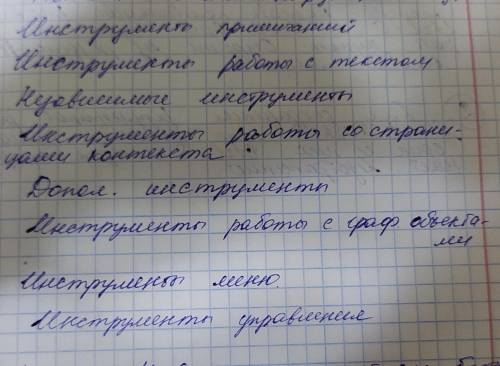 Инструменты примечаний
Инструменты работы с текстом
Независимые инструменты
Инструменты работы со страни-
цами контекста
Допол. инструменты
Инструменты работы с граф объекта-
ми
Инструменты меню.
Инструменты управления